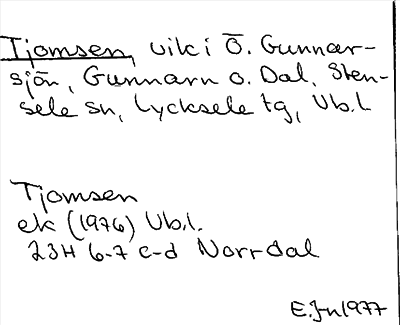 Tjomsen, vik i Ö. Gunnar-
sjön, Gunnarn o. Dal, Sten-
sele sn, Lycksele tg, Vb.l.
Tjomsen
ek (1976) Vb.l.
23H 6-7 c-d Norrdal
E.Jn 1977